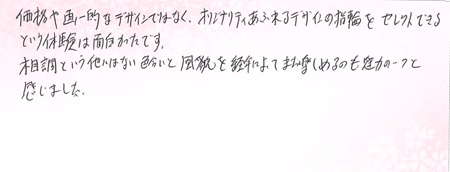 価格や画一的なデザインではなく、オリジナリティあふれるデザインの指輪をセレクトできる
という体験は面白かったです。
木目調という他にはない色合いと風貌を経年によってまた楽しめるのも魅力の一つと
感じました。